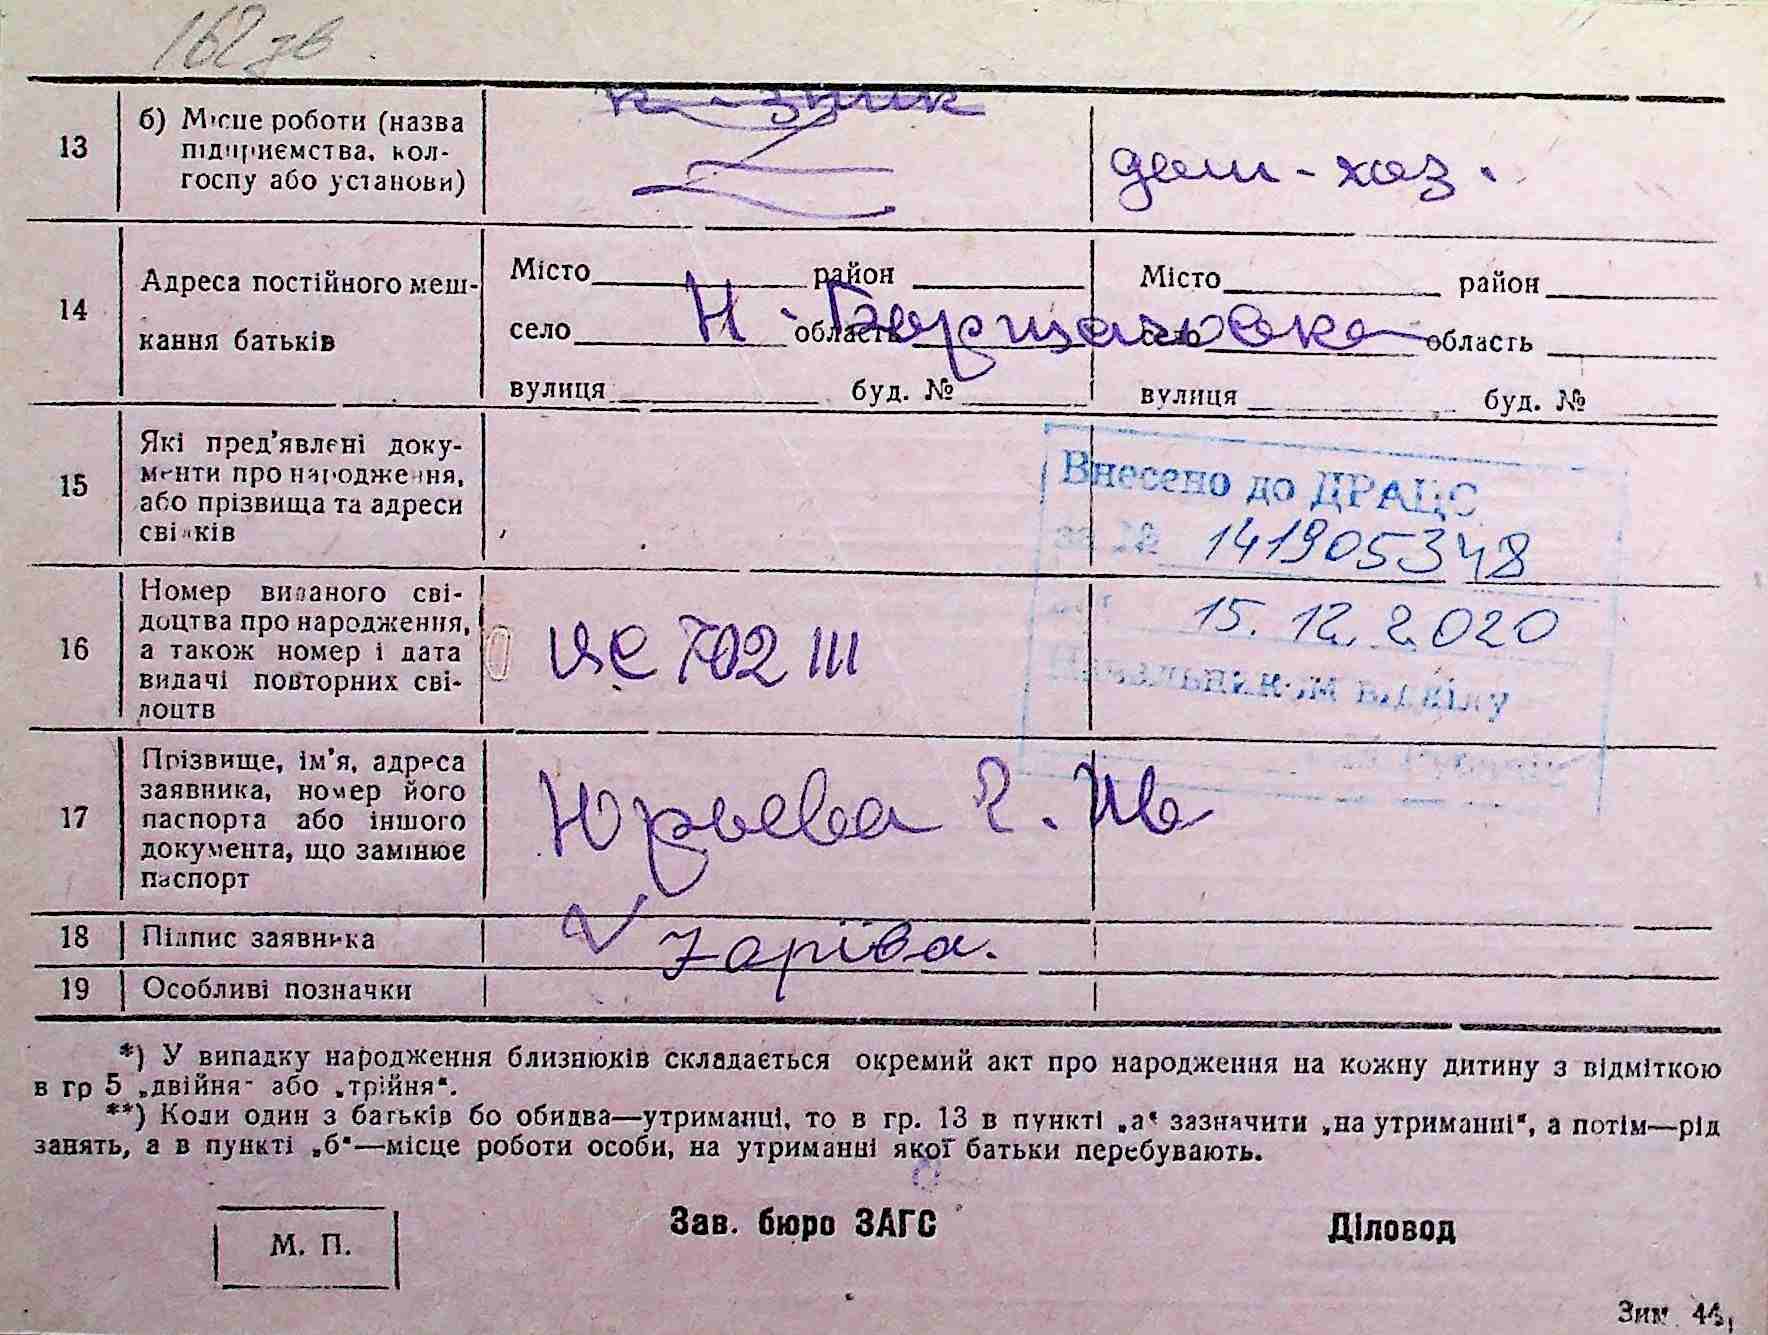 162 зв.
к-зник
13
б) Місце роботи (назва
підприємства, кол-
госпу або установи)
дом-хоз.
14
Адреса постійного меш-
кання батьків
Місто район
село область
вулиця буд. №
Н-Борщаговка
Місто район
село область
вулиця буд. №
15
Які пред'явлені доку-
менти про народження,
або прізвища та адреси
свідків
Внесено до ДРАЦС
за № 141905348
від 15.12.2020
Начальником відділу
16
Номер виданого сві-
доцтва про народження,
а також номер і дата
видачі повторних сві-
доцтв
702111
17
Прізвище, ім'я, адреса
заявника, номер його
паспорта або іншого
документа, що замінює
паспорт
Юрьева
18
Підпис заявника
19
Особливі позначки
*) У випадку народження близнюків складається окремий акт про народження на кожну дитину з відміткою
в гр 5 „двійня" або „трійня".
**) Коли один з батьків бо обидва—утриманці, то в гр. 13 в пункті „а" зазначити „на утриманні", а потім—рід
занять, а в пункті „б"—місце роботи особи, на утриманні якої батьки перебувають.
М. П.
Зав. бюро ЗАГС
Діловод
Зим. 44,